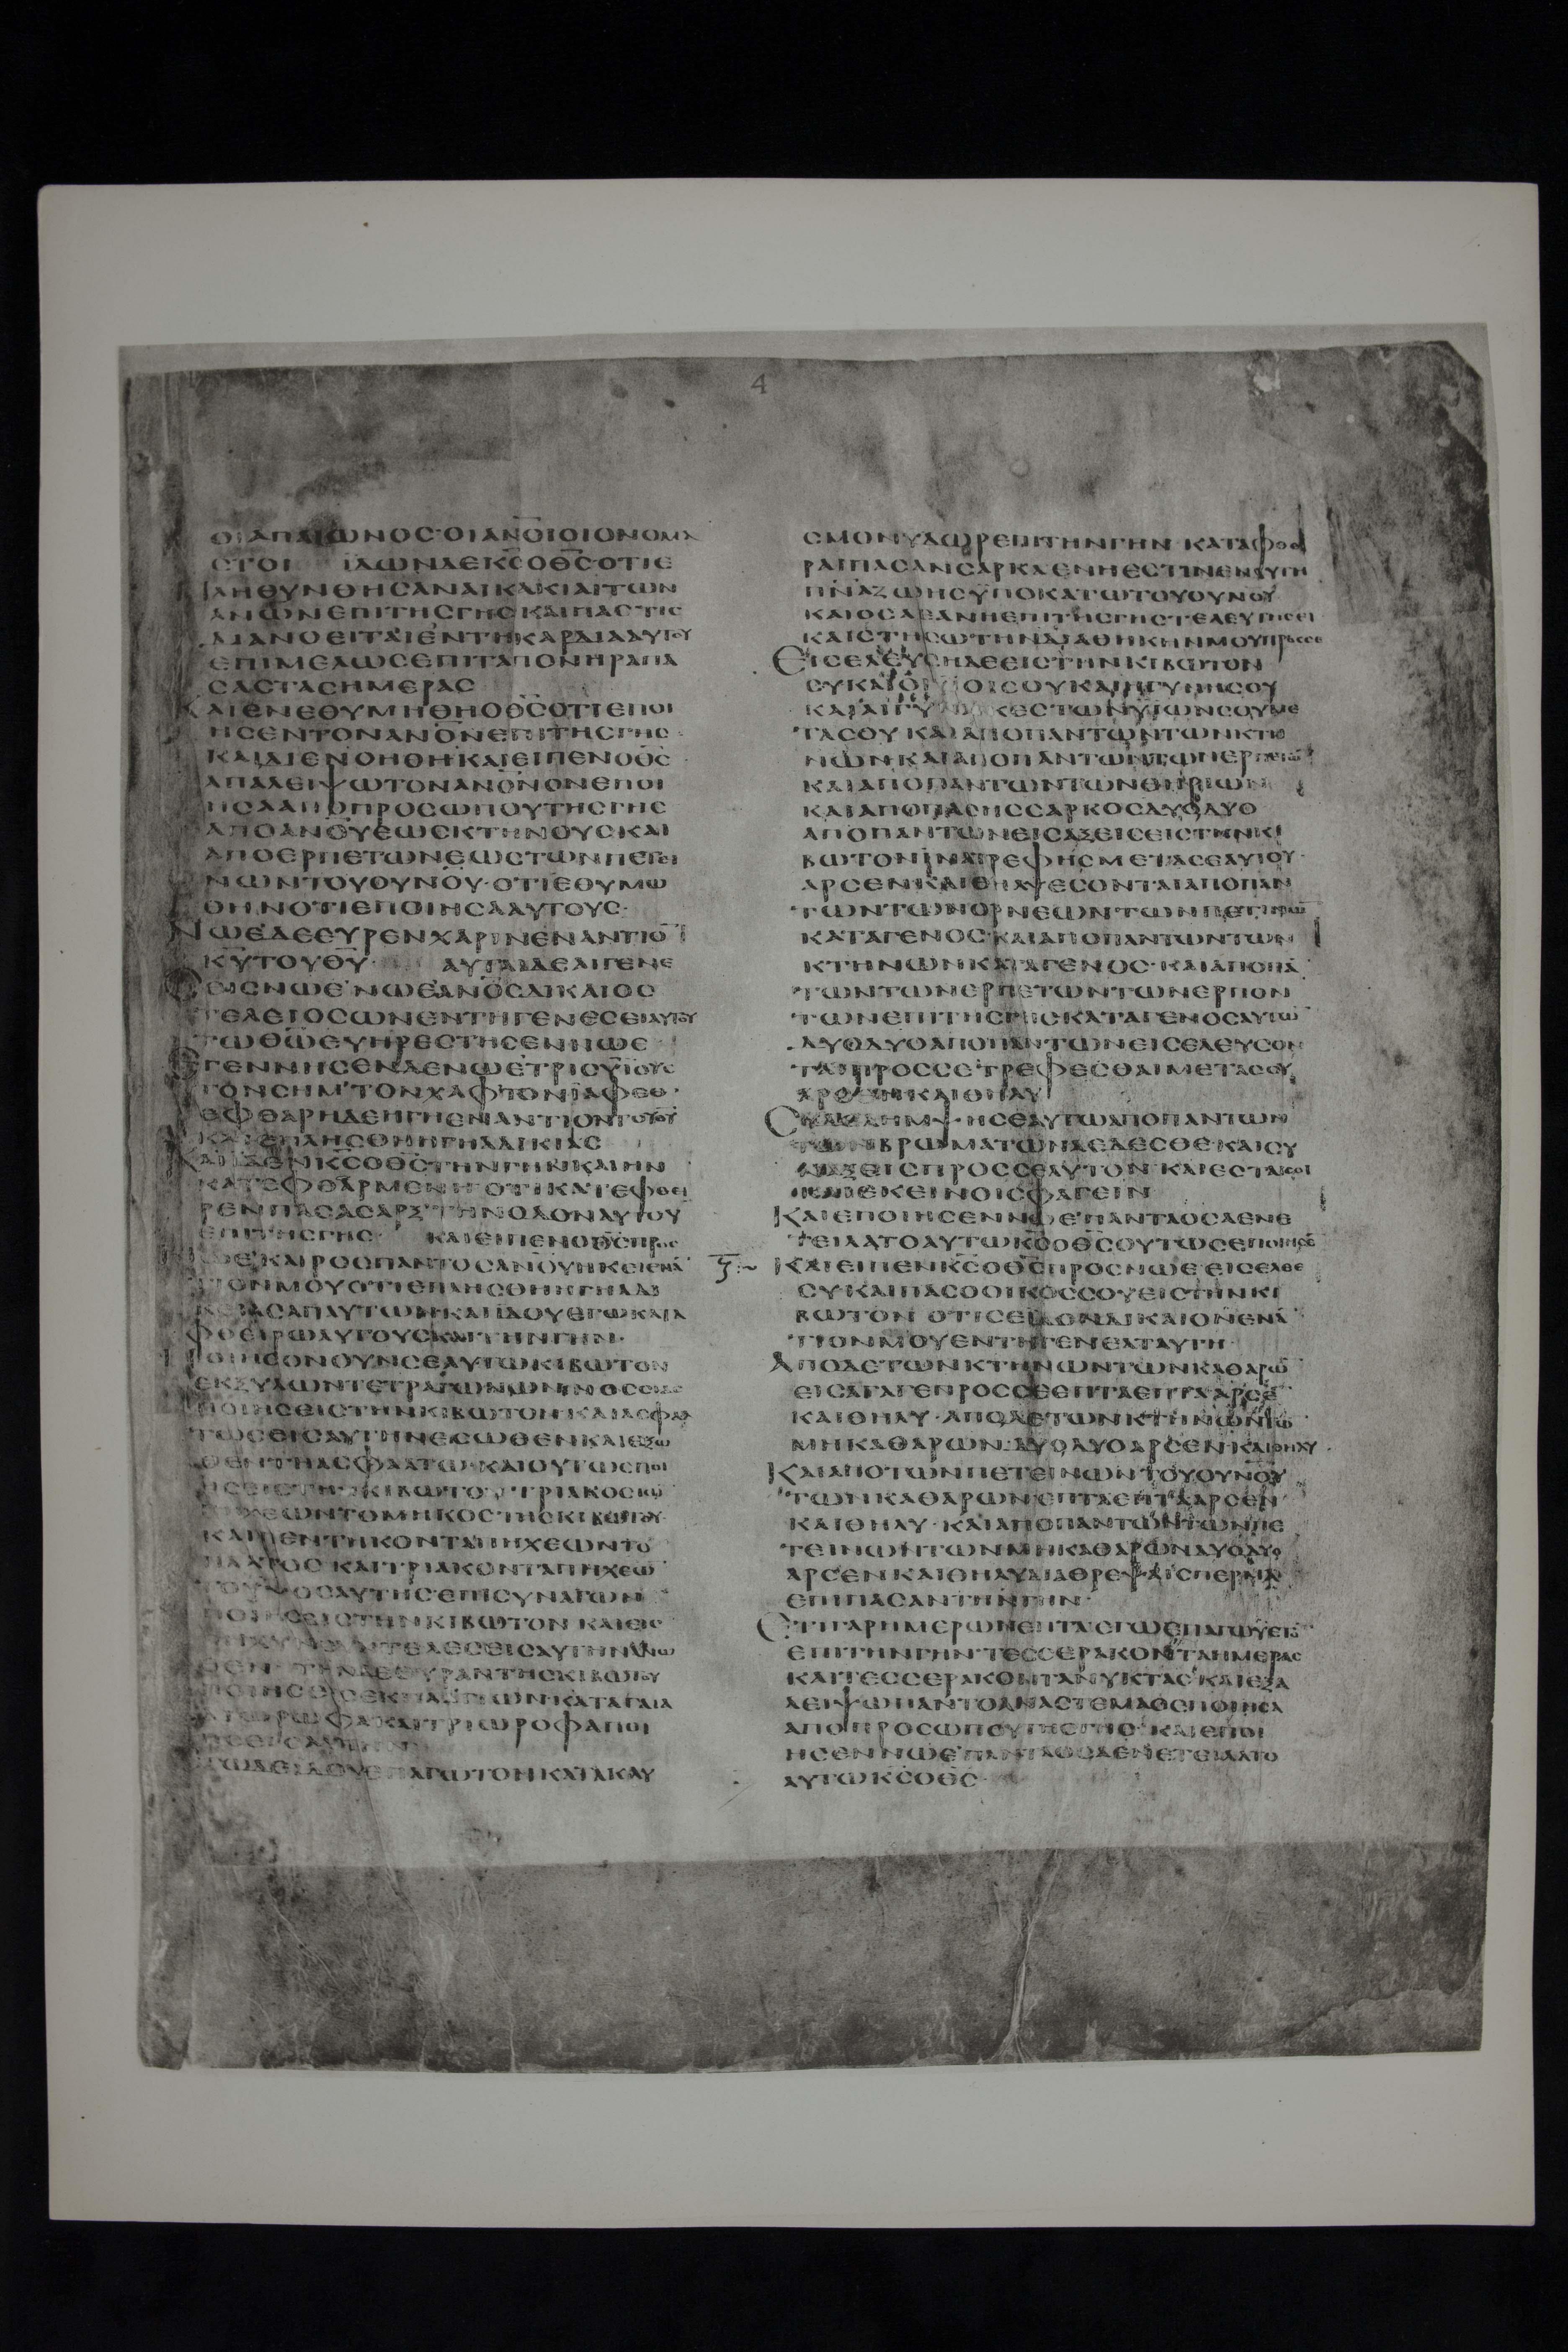 4
ΟΙΑΠΑΙΩΝΟΣ·ΟΙΑΝΟΙΟΙΟΝΟΜΑ
ΣΤΟΙ ΪΔΩΝΔΕΚΣΟΘΣΟΤΙΕ
ΠΛΗΘΥΝΘΗΣΑΝΑΙΚΑΚΙΑΙΤΩΝ
ΑΝΩΝΕΠΙΤΗΣΓΗΣΚΑΙΠΑΣΤΙΣ
ΔΙΑΝΟΕΙΤΑΙΕΝΤΗΚΑΡΔΙΑΑΥΤΟΥ
ΕΠΙΜΕΛΩΣΕΠΙΤΑΠΟΝΗΡΑΠΑ
ΣΑΣΤΑΣΗΜΕΡΑΣ
ΚΑΙΕΝΕΘΥΜΗΘΗΟΘΣΟΤΙΕΠΟΙ
ΗΣΕΝΤΟΝΑΝΟΝΕΠΙΤΗΣΓΗΣ
ΚΑΙΔΙΕΝΟΗΘΗΚΑΙΕΙΠΕΝΟΘΣ
ΑΠΑΛΕΙΨΩΤΟΝΑΝΟΝΟΝΕΠΟΙ
ΗΣΑΑΠΟΠΡΟΣΩΠΟΥΤΗΣΓΗΣ
ΑΠΟΑΝΟΥΕΩΣΚΤΗΝΟΥΣΚΑΙ
ΑΠΟΕΡΠΕΤΩΝΕΩΣΤΩΝΠΕΤΕΙ
ΝΩΝΤΟΥΟΥΝΟΥ·ΟΤΙΕΘΥΜΩ
ΘΗΝΟΤΙΕΠΟΙΗΣΑΑΥΤΟΥΣ·
ΝΩΕΔΕΕΥΡΕΝΧΑΡΙΝΕΝΑΝΤΙΟ
ΚΥΤΟΥΘΥ· ΑΥΤΑΙΔΕΑΙΓΕΝΕ
ΣΕΙΣΝΩΕ·ΝΩΕΑΝΟΣΔΙΚΑΙΟΣ
ΤΕΛΕΙΟΣΩΝΕΝΤΗΓΕΝΕΣΕΙΑΥΤΟΥ
ΤΩΘΩΕΥΗΡΕΣΤΗΣΕΝΝΩΕ
ΕΓΕΝΝΗΣΕΝΔΕΝΩΕΤΡΙΣΥΪΟΥΣ
ΤΟΝΣΗΜ·ΤΟΝΧΑΦ·ΤΟΝΪΑΦΕΘ·
ΕΦΘΑΡΗΔΕΗΓΗΕΝΑΝΤΙΟΝΤΟΥΘΥ
ΚΑΙΕΠΛΗΣΘΗΗΓΗΑΔΙΚΙΑΣ
ΚΑΙΪΔΕΝΚΣΟΘΣΤΗΝΓΗΝΚΑΙΗΝ
ΚΑΤΕΦΘΑΡΜΕΝΗΟΤΙΚΑΤΕΦΘΕΙ
ΡΕΝΠΑΣΑΣΑΡΞΤΗΝΟΔΟΝΑΥΤΟΥ
ΕΠΙΤΗΣΓΗΣ· ΚΑΙΕΙΠΕΝΟΘΣΠΡΟΣ
ΝΩΕ·ΚΑΙΡΟΣΠΑΝΤΟΣΑΝΟΥΗΚΕΙΕΝΑ
ΤΙΟΝΜΟΥΟΤΙΕΠΛΗΣΘΗΗΓΗΑΔΙ
ΚΕΙΑΣΑΠΑΥΤΩΝΚΑΙΪΔΟΥΕΓΩΚΑΤΑ
ΦΘΕΙΡΩΑΥΤΟΥΣΚΑΙΤΗΝΓΗΝ·
ΠΟΙΗΣΟΝΟΥΝΣΕΑΥΤΩΚΙΒΩΤΟΝ
ΕΚΞΥΛΩΝΤΕΤΡΑΓΩΝΩΝΝΟΣΣΙΑΣ
ΠΟΙΗΣΕΙΣΤΗΝΚΙΒΩΤΟΝ·ΚΑΙΑΣΦΑΛ
ΤΩΣΕΙΣΑΥΤΗΝΕΣΩΘΕΝΚΑΙΕΞΩ
ΘΕΝΤΗΑΣΦΑΛΤΩ·ΚΑΙΟΥΤΩΣΠΟΙ
ΗΣΕΙΣΤΗΝΚΙΒΩΤΟΝ·ΤΡΙΑΚΟΣΙΩ
ΠΗΧΕΩΝΤΟΜΗΚΟΣΤΗΣΚΙΒΩΤΟΥ
ΚΑΙΠΕΝΤΗΚΟΝΤΑΠΗΧΕΩΝΤΟ
ΠΛΑΤΟΣ·ΚΑΙΤΡΙΑΚΟΝΤΑΠΗΧΕΩ
ΤΟΥΨΟΣΑΥΤΗΣΕΠΙΣΥΝΑΓΩΝ
ΠΟΙΗΣΕΙΣΤΗΝΚΙΒΩΤΟΝ·ΚΑΙΕΙΣ
ΠΗΧΥΝΣΥΝΤΕΛΕΣΕΙΣΑΥΤΗΝΑΝΩ
ΘΕΝ·ΤΗΝΔΕΘΥΡΑΝΤΗΣΚΙΒΩΤΟΥ
ΠΟΙΗΣΕΙΣΕΚΠΛΑΓΙΩΝΚΑΤΑΓΑΙΑ
ΔΙΩΡΩΦΑΚΑΙΤΡΙΩΡΟΦΑΠΟΙ
ΗΣΕΙΣΑΥΤΗΝ
ΕΓΩΔΕΪΔΟΥΕΠΑΓΩΤΟΝΚΑΤΑΚΛΥ
ΣΜΟΝΥΔΩΡΕΠΙΤΗΝΓΗΝ·ΚΑΤΑΦΘΕΙ
ΡΑΙΠΑΣΑΝΣΑΡΚΑΕΝΗΕΣΤΙΝΕΝΑΥΤΗ
ΠΝΑΖΩΗΣΫΠΟΚΑΤΩΤΟΥΟΥΝΟΥ
ΚΑΙΟΣΑΕΑΝΗΕΠΙΤΗΣΓΗΣΤΕΛΕΥΤΗΣΕΙ
ΚΑΙΣΤΗΣΩΤΗΝΔΙΑΘΗΚΗΝΜΟΥΠΡΟΣΣΕ
ΕΙΣΕΛΕΥΣΗΔΕΕΙΣΤΗΝΚΙΒΩΤΟΝ
ΣΥΚΑΙΟΙΥΙΟΙΣΟΥΚΑΙΗΓΥΝΗΣΟΥ
ΚΑΙΑΙΓΥΝΑΙΚΕΣΤΩΝΥΪΩΝΣΟΥΜΕ
ΤΑΣΟΥ·ΚΑΙΑΠΟΠΑΝΤΩΝΤΩΝΚΤΗ
ΝΩΝΚΑΙΑΠΟΠΑΝΤΩΝΤΩΝΕΡΠΕΤΩ
ΚΑΙΑΠΟΠΑΝΤΩΝΤΩΝΘΗΡΙΩΝ
ΚΑΙΑΠΟΠΑΣΗΣΣΑΡΚΟΣΔΥΟΔΥΟ
ΑΠΟΠΑΝΤΩΝΕΙΣΑΞΕΙΣΕΙΣΤΗΝΚΙ
ΒΩΤΟΝΙΝΑΤΡΕΦΗΣΜΕΤΑΣΕΑΥΤΟΥ·
ΑΡΣΕΝΚΑΙΘΗΛΥΕΣΟΝΤΑΙΑΠΟΠΑΝ
ΤΩΝΤΩΝΟΡΝΕΩΝΤΩΝΠΕΤΙΝΩ
ΚΑΤΑΓΕΝΟΣ·ΚΑΙΑΠΟΠΑΝΤΩΝΤΩΝ
ΚΤΗΝΩΝΚΑΤΑΓΕΝΟΣ·ΚΑΙΑΠΟΠΑ
ΤΩΝΤΩΝΕΡΠΕΤΩΝΤΩΝΕΡΠΟΝ
ΤΩΝΕΠΙΤΗΣΓΗΣΚΑΤΑΓΕΝΟΣΑΥΤΩ
ΔΥΟΔΥΟΑΠΟΠΑΝΤΩΝΕΙΣΕΛΕΥΣΟΝ
ΤΑΙΠΡΟΣΣΕΤΡΕΦΕΣΘΑΙΜΕΤΑΣΟΥ
ΑΡΣΕΝΚΑΙΘΗΛΥ
ΣΥΔΕΛΗΜΨΗΣΕΑΥΤΩΑΠΟΠΑΝΤΩΝ
ΤΩΝΒΡΩΜΑΤΩΝΑΕΔΕΣΘΕ·ΚΑΙΣΥ
ΑΞΕΙΣΠΡΟΣΣΕΑΥΤΟΝ·ΚΑΙΕΣΤΑΙΣΟΙ
ΚΑΙΕΚΕΙΝΟΙΣΦΑΓΕΙΝ
ΚΑΙΕΠΟΙΗΣΕΝΝΩΕΠΑΝΤΑΟΣΑΕΝΕ
ΤΕΙΛΑΤΟΑΥΤΩΚΣΟΘΣΟΥΤΩΣΕΠΟΙΗΣΕ
Ϛ ΚΑΙΕΙΠΕΝΚΣΟΘΣΠΡΟΣΝΩΕ·ΕΙΣΕΛΘΕ
ΣΥΚΑΙΠΑΣΟΟΙΚΟΣΣΟΥΕΙΣΤΗΝΚΙ
ΒΩΤΟΝ·ΟΤΙΣΕΙΔΟΝΔΙΚΑΙΟΝΕΝΑ
ΤΙΟΝΜΟΥΕΝΤΗΓΕΝΕΑΤΑΥΤΗ·
ΑΠΟΔΕΤΩΝΚΤΗΝΩΝΤΩΝΚΑΘΑΡΩ
ΕΙΣΑΓΑΓΕΠΡΟΣΣΕΕΠΤΑΕΠΤΑΑΡΣΕ
ΚΑΙΘΗΛΥ·ΑΠΟΔΕΤΩΝΚΤΗΝΩΝΤΩ
ΜΗΚΑΘΑΡΩΝ·ΔΥΟΔΥΟΑΡΣΕΝΚΑΙΘΗΛΥ·
ΚΑΙΑΠΟΤΩΝΠΕΤΕΙΝΩΝΤΟΥΟΥΝΟΥ
ΤΩΝΚΑΘΑΡΩΝΕΠΤΑΕΠΤΑΑΡΣΕΝ
ΚΑΙΘΗΛΥ·ΚΑΙΑΠΟΠΑΝΤΩΝΤΩΝΠΕ
ΤΕΙΝΩΝΤΩΝΜΗΚΑΘΑΡΩΝΔΥΟΔΥΟ
ΑΡΣΕΝΚΑΙΘΗΛΥΔΙΑΘΡΕΨΑΙΣΠΕΡΜΑ
ΕΠΙΠΑΣΑΝΤΗΝΓΗΝ·
ΕΤΙΓΑΡΗΜΕΡΩΝΕΠΤΑΕΓΩΕΠΑΓΩΫΕΤΟ
ΕΠΙΤΗΝΓΗΝ·ΤΕΣΣΕΡΑΚΟΝΤΑΗΜΕΡΑΣ
ΚΑΙΤΕΣΣΕΡΑΚΟΝΤΑΝΥΚΤΑΣ·ΚΑΙΕΞΑ
ΛΕΙΨΩΠΑΝΤΟΑΝΑΣΤΕΜΑΟΕΠΟΙΗΣΑ
ΑΠΟΠΡΟΣΩΠΟΥΤΗΣΓΗΣ·ΚΑΙΕΠΟΙ
ΗΣΕΝΝΩΕΠΑΝΤΑΟΣΑΕΝΕΤΕΙΛΑΤΟ
ΑΥΤΩΚΣΟΘΣ·